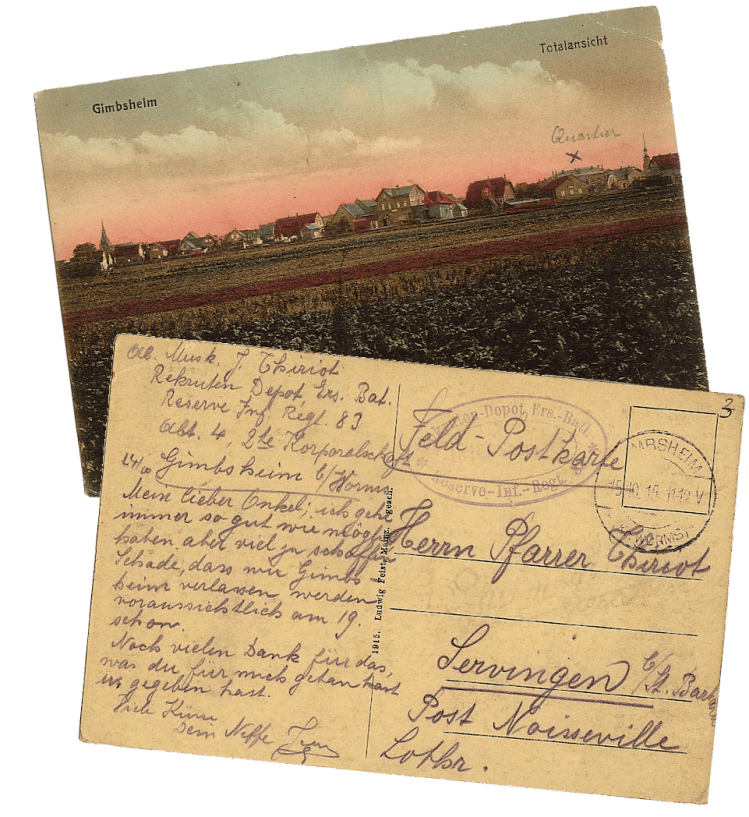 Gimbsheim
Totalansicht
Quartier
x
Abs. Musk. J. Thiriot
Rekruten Depot Ers. Bat.
Reserve Inf. Regt. 83
Abt. 4, 2te Korporalschaft
14/10 Gimbsheim b/Worms.
Mein lieber Onkel, ich gehe
immer so gut wie möglich
haben aber viel zu schaffen
Schade, dass wir Gimbs
heim verlassen werden
voraussichtlich am 19.
schon.
Noch vielen Dank für das,
was du für mich getan hast
gegeben hast.
Viele Küsse
Dein Neffe
1915. Ludwig Feist, Mainz. gesch.
Depot Ers.-Batl
Reserve-Inf.-Regt.
Feld-Postkarte
3
WORMS
Herrn Pfarrer Thiriot
Servingen b/St. Barbara
Post Noisseville
Lothr.